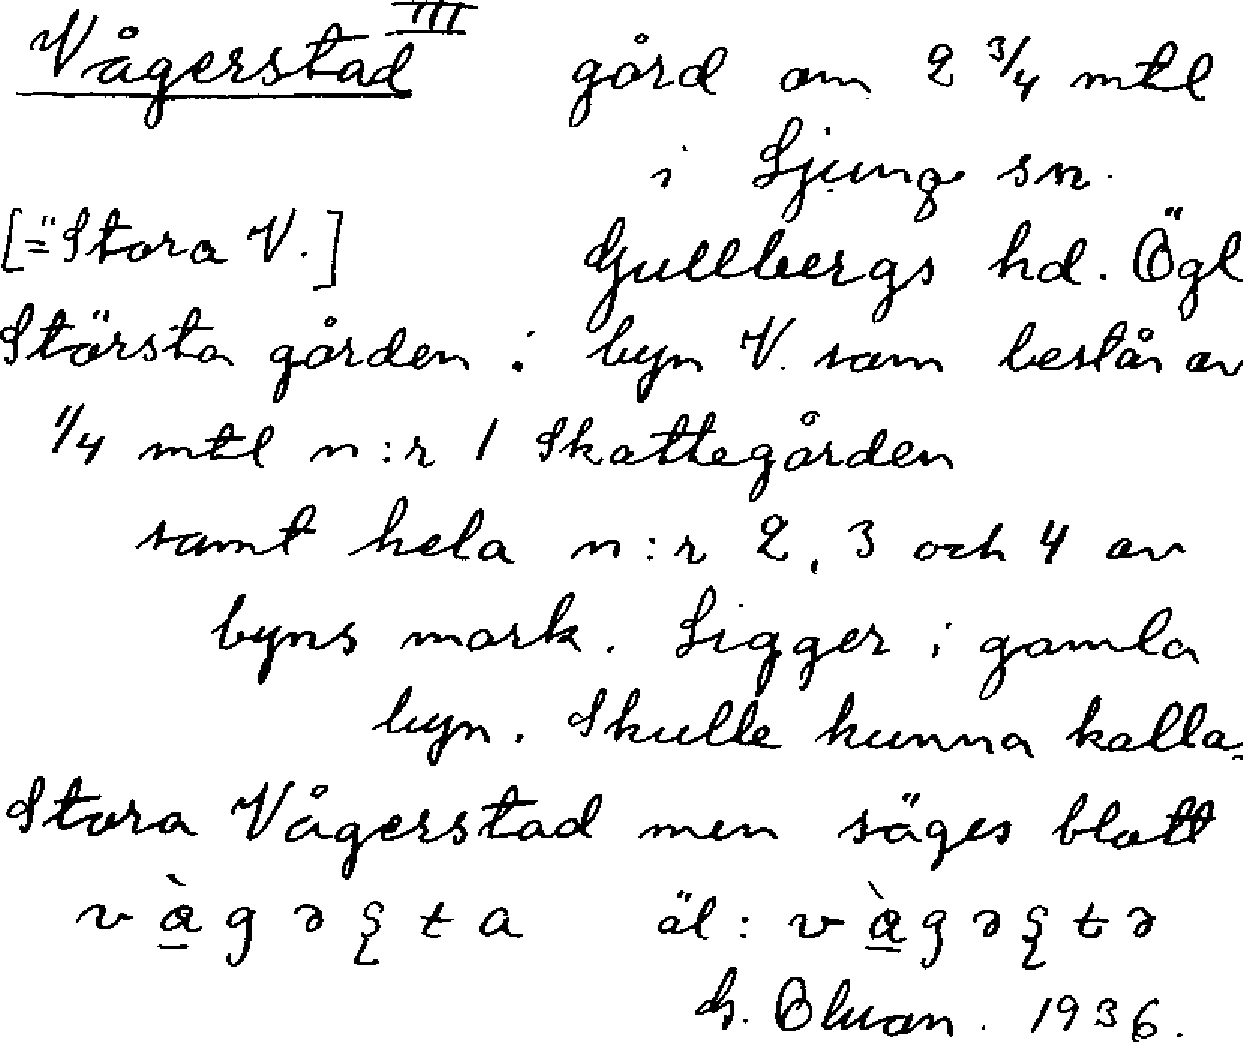 Vågerstad III gård om 2 3/4 mtl
i Ljungs sn.
[="Stora V.] Gullbergs hd. Ögl
Största gården i byn V. som består av
1/4 mtl n:r 1 Skattegården
samt hela n:r 2, 3 och 4 av
byns mark. Ligger i gamla
byn. Skulle kunna kalla
Stora Vågerstad men säges blott
äl:
G. 1936.